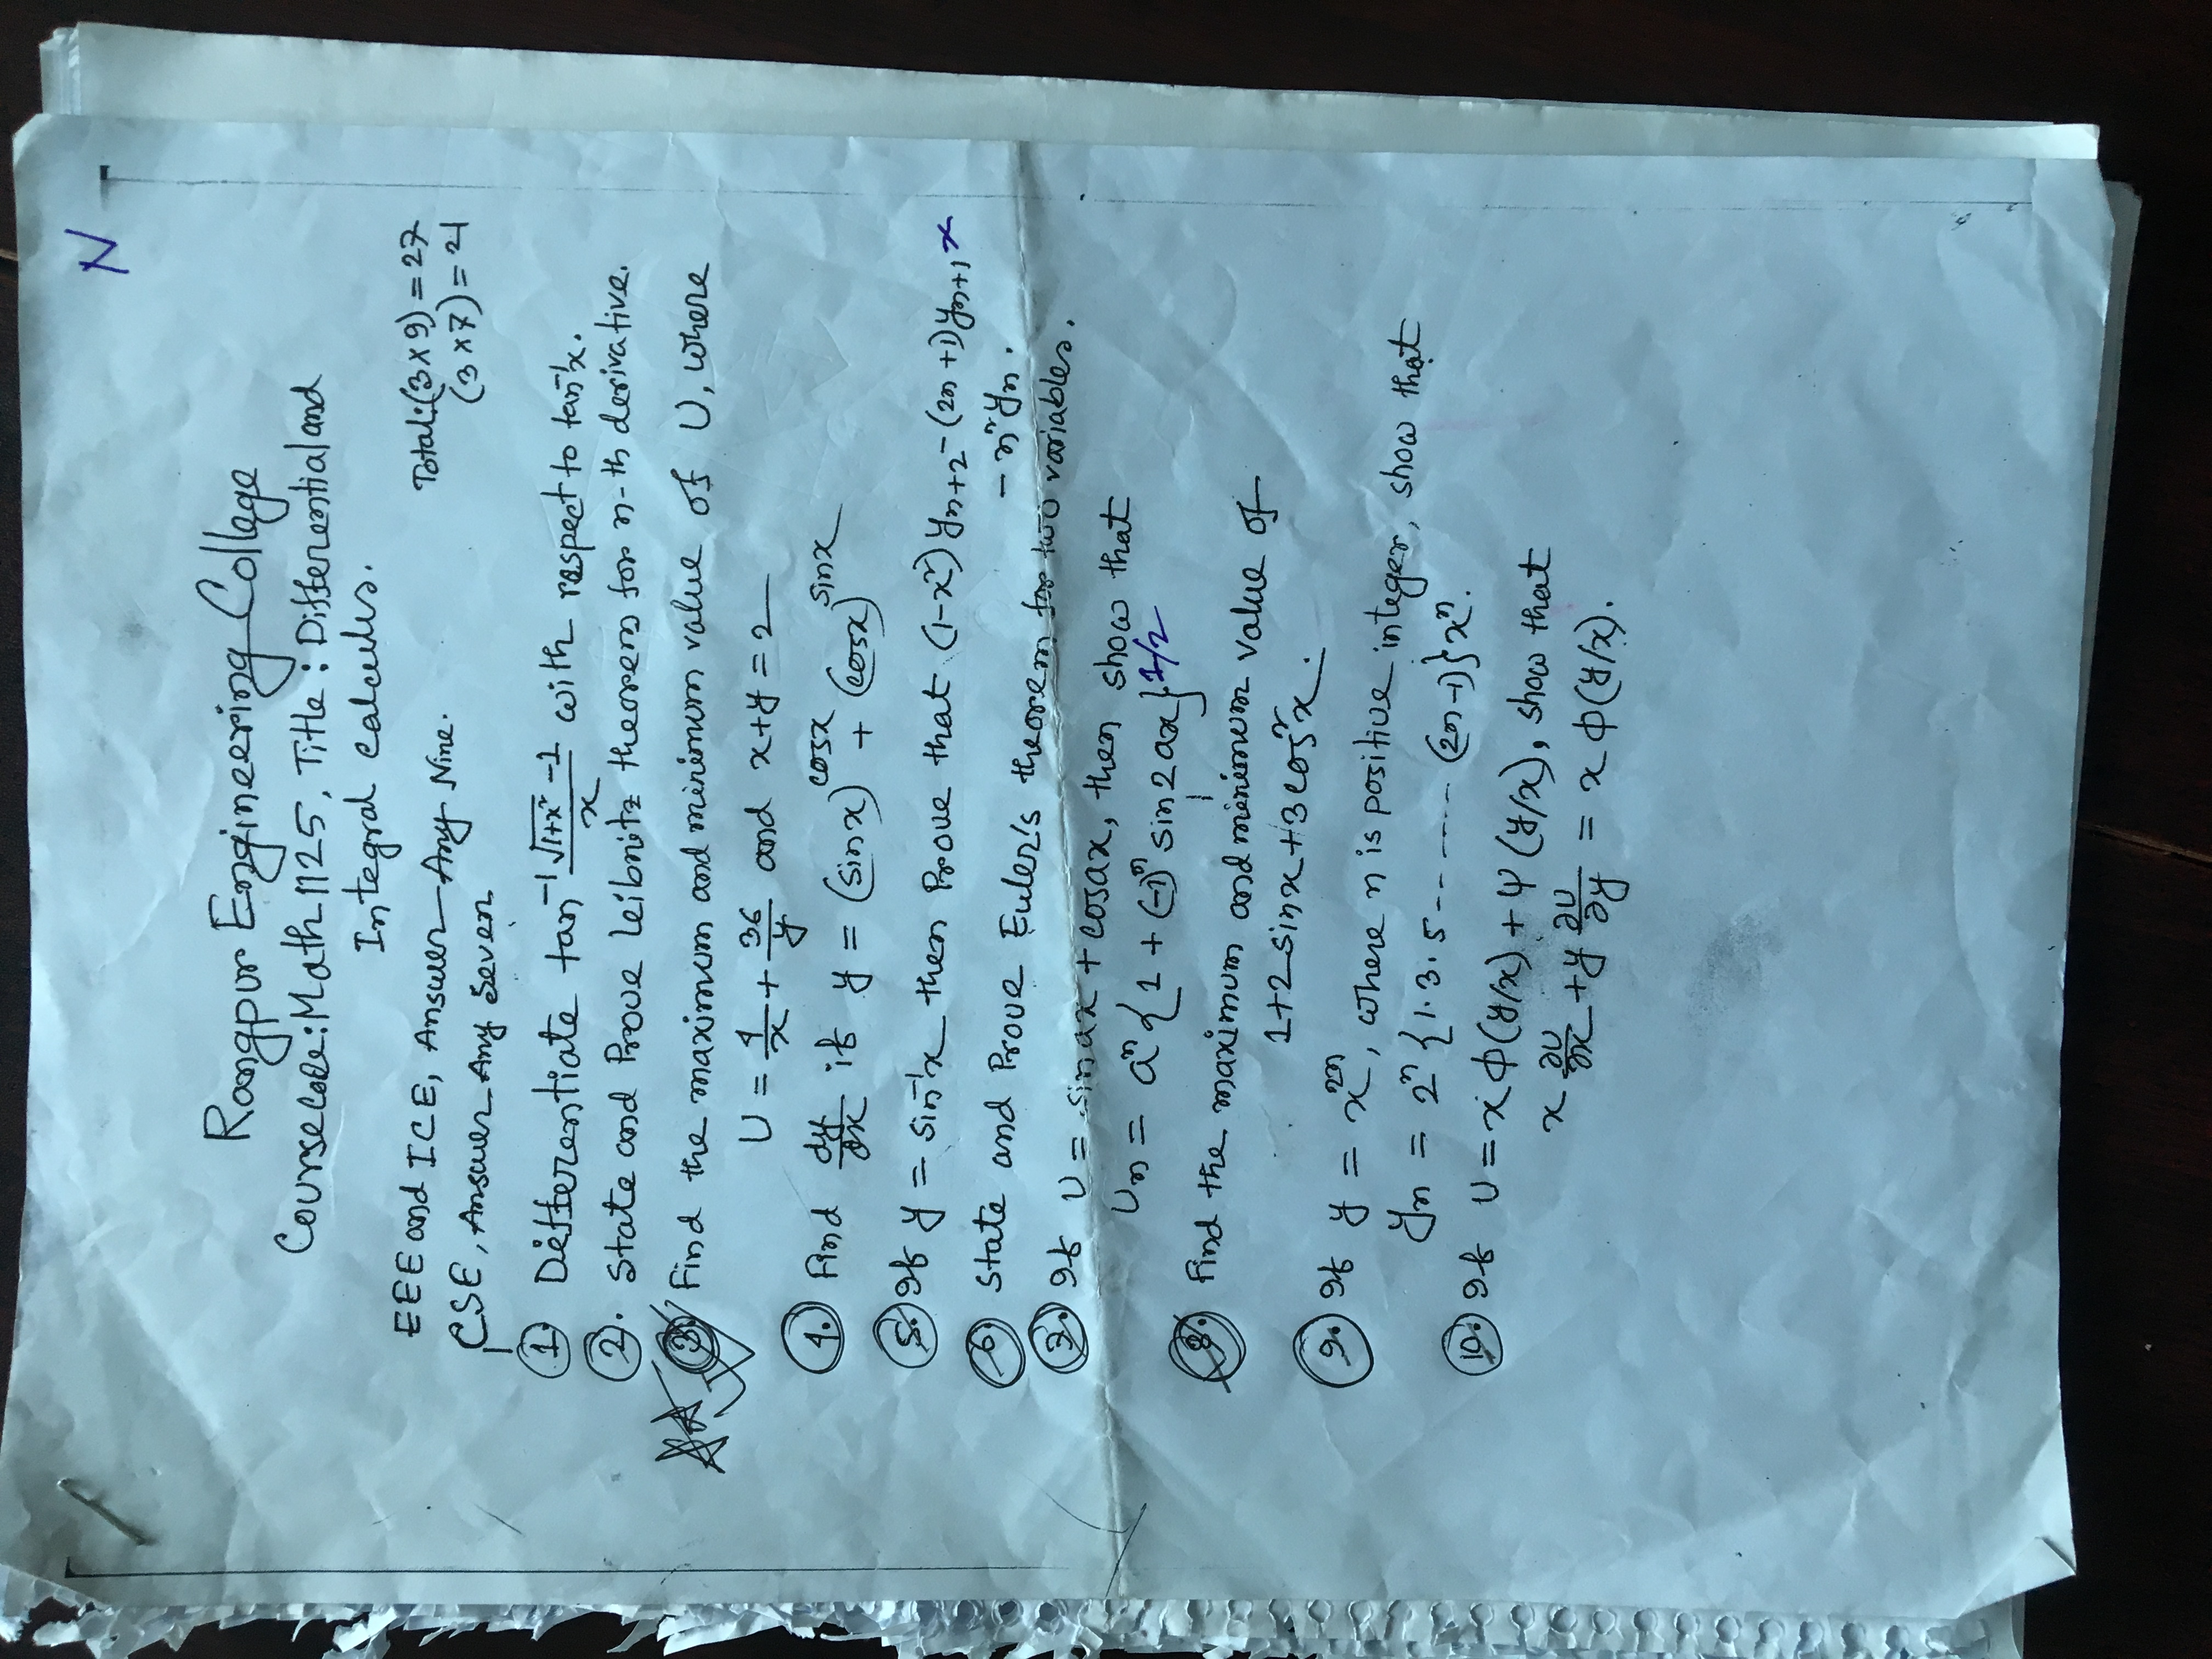 N
Rangpur Engineering College
Course code: Math 1125, Title: Differential and
Integral calculus.
EEE and ICE, Answer Any Nine.
Total: (3×9) = 27
CSE, Answer Any Seven
(3×7) = 21
1. Differentiate tan⁻¹ (√(1+x²) -1)/x with respect to tan⁻¹x.
2. State and Prove Leibnitz theorem for n-th derivative.
3. Find the maximum and minimum value of U, where
U = 4/x + 36/y and x+y = 2
4. Find dy/dx if y = (sinx)^cosx + (cosx)^sinx
5. If y = sin⁻¹x then Prove that (1-x²)yₙ₊₂ - (2n+1)yₙ₊₁ x
- n²yₙ.
6. State and Prove Euler's theorem for two variables.
7. If U = sinax + cosax, then show that
Uₙ = aⁿ{1 + (-1)ⁿ sin2ax}^1/2
8. Find the maximum and minimum value of
1+2sinx+3cos²x.
9. If y = x²ⁿ, where n is positive integer, show that
yₙ = 2ⁿ{1.3.5------- (2n-1)}xⁿ.
10. If U = xφ(y/x) + ψ(y/x), show that
x ∂U/∂x + y ∂U/∂y = xφ(y/x).